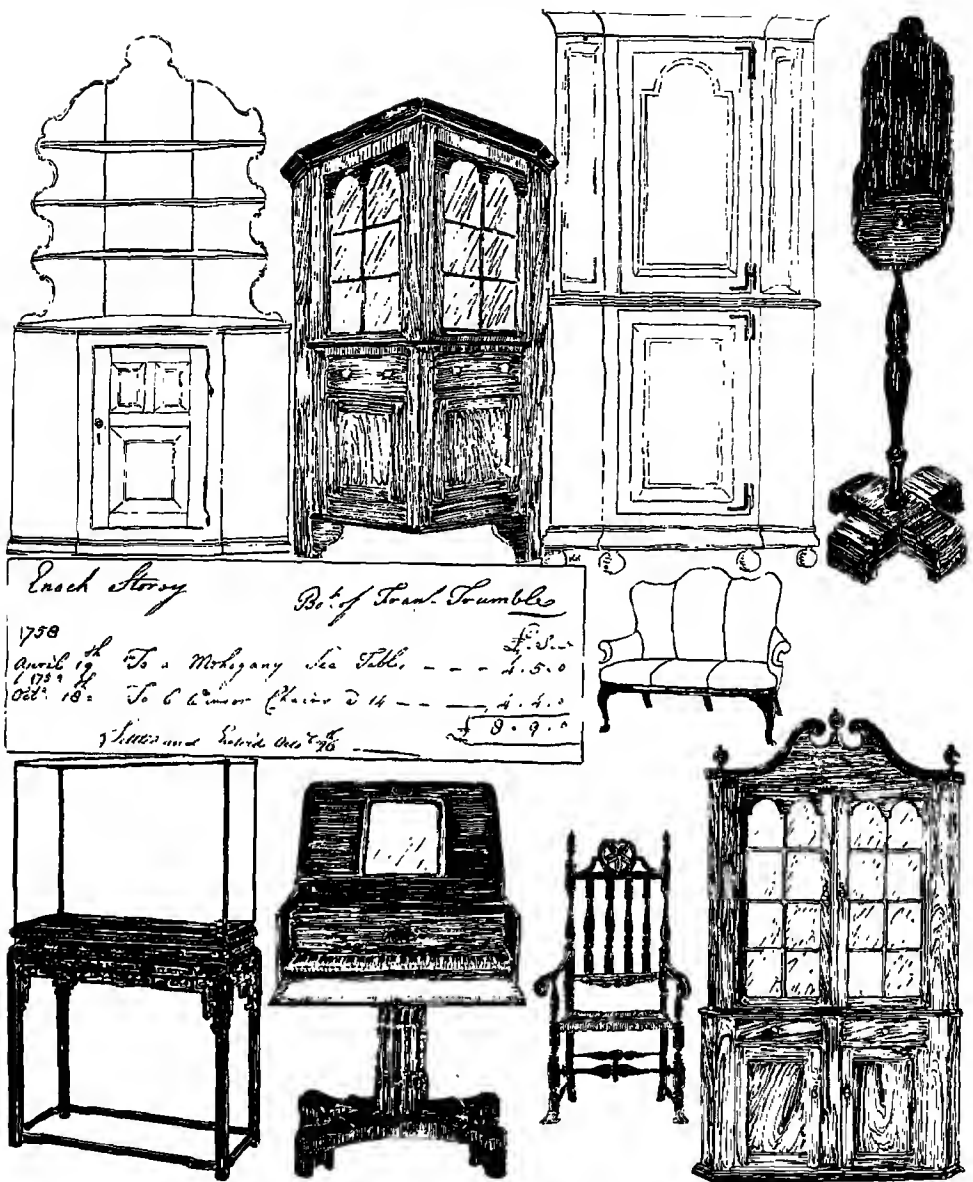 Enoch Storey Bot. of Fran. Trumble
1758 £. S.
April 19th To a Mohogany Tea Table - - - 4. 5. 0
1759
Octr. 18th To 6 Winsor Chairs @ 14 - - - 4. 4. 0
£ 8. 9. 0